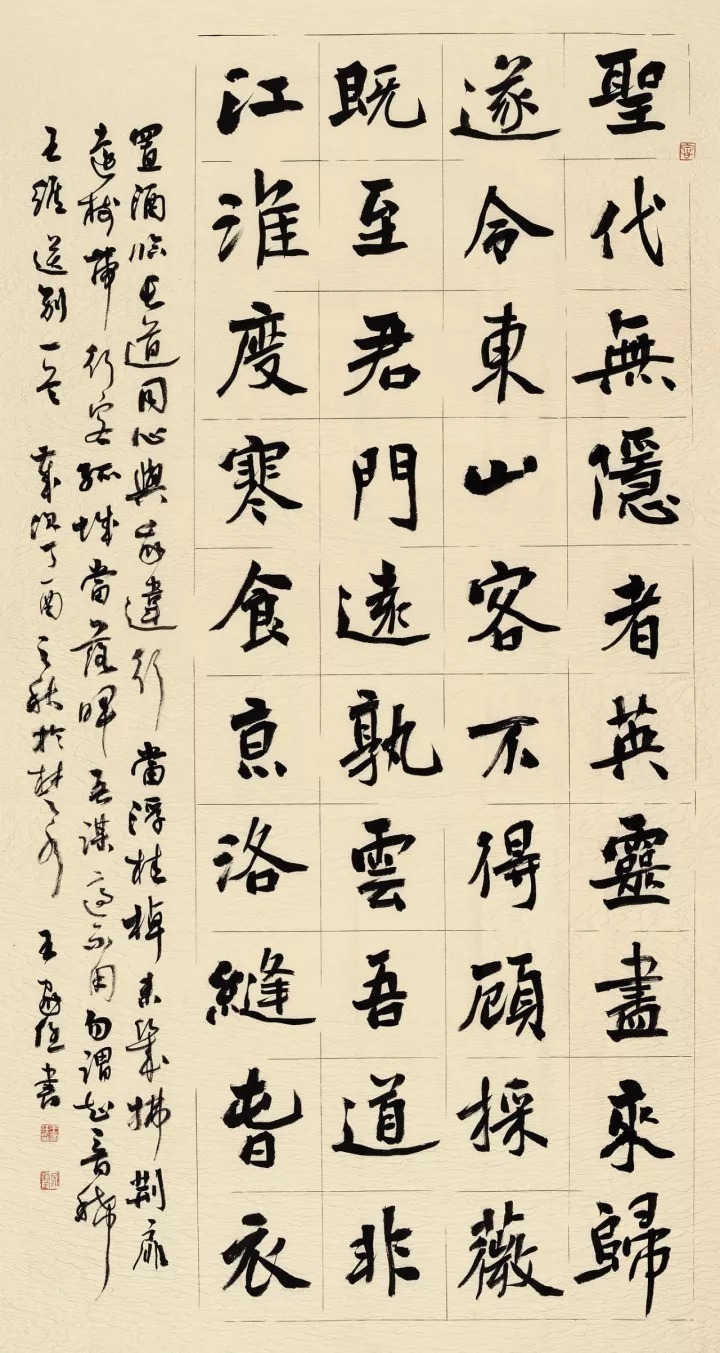 聖代無隱者英靈盡來歸
遂令東山客不得顧採薇
既至君門遠孰雲吾道非
江淮度寒食亰洛縫旾衣
置酒臨長道同心與我違行當浮桂棹未幾拂荊扉
遠樹帶行客孤城當落暉吾謀適不用勿謂知音稀
王維送別一首 歲次丁酉之秋於楚 王書